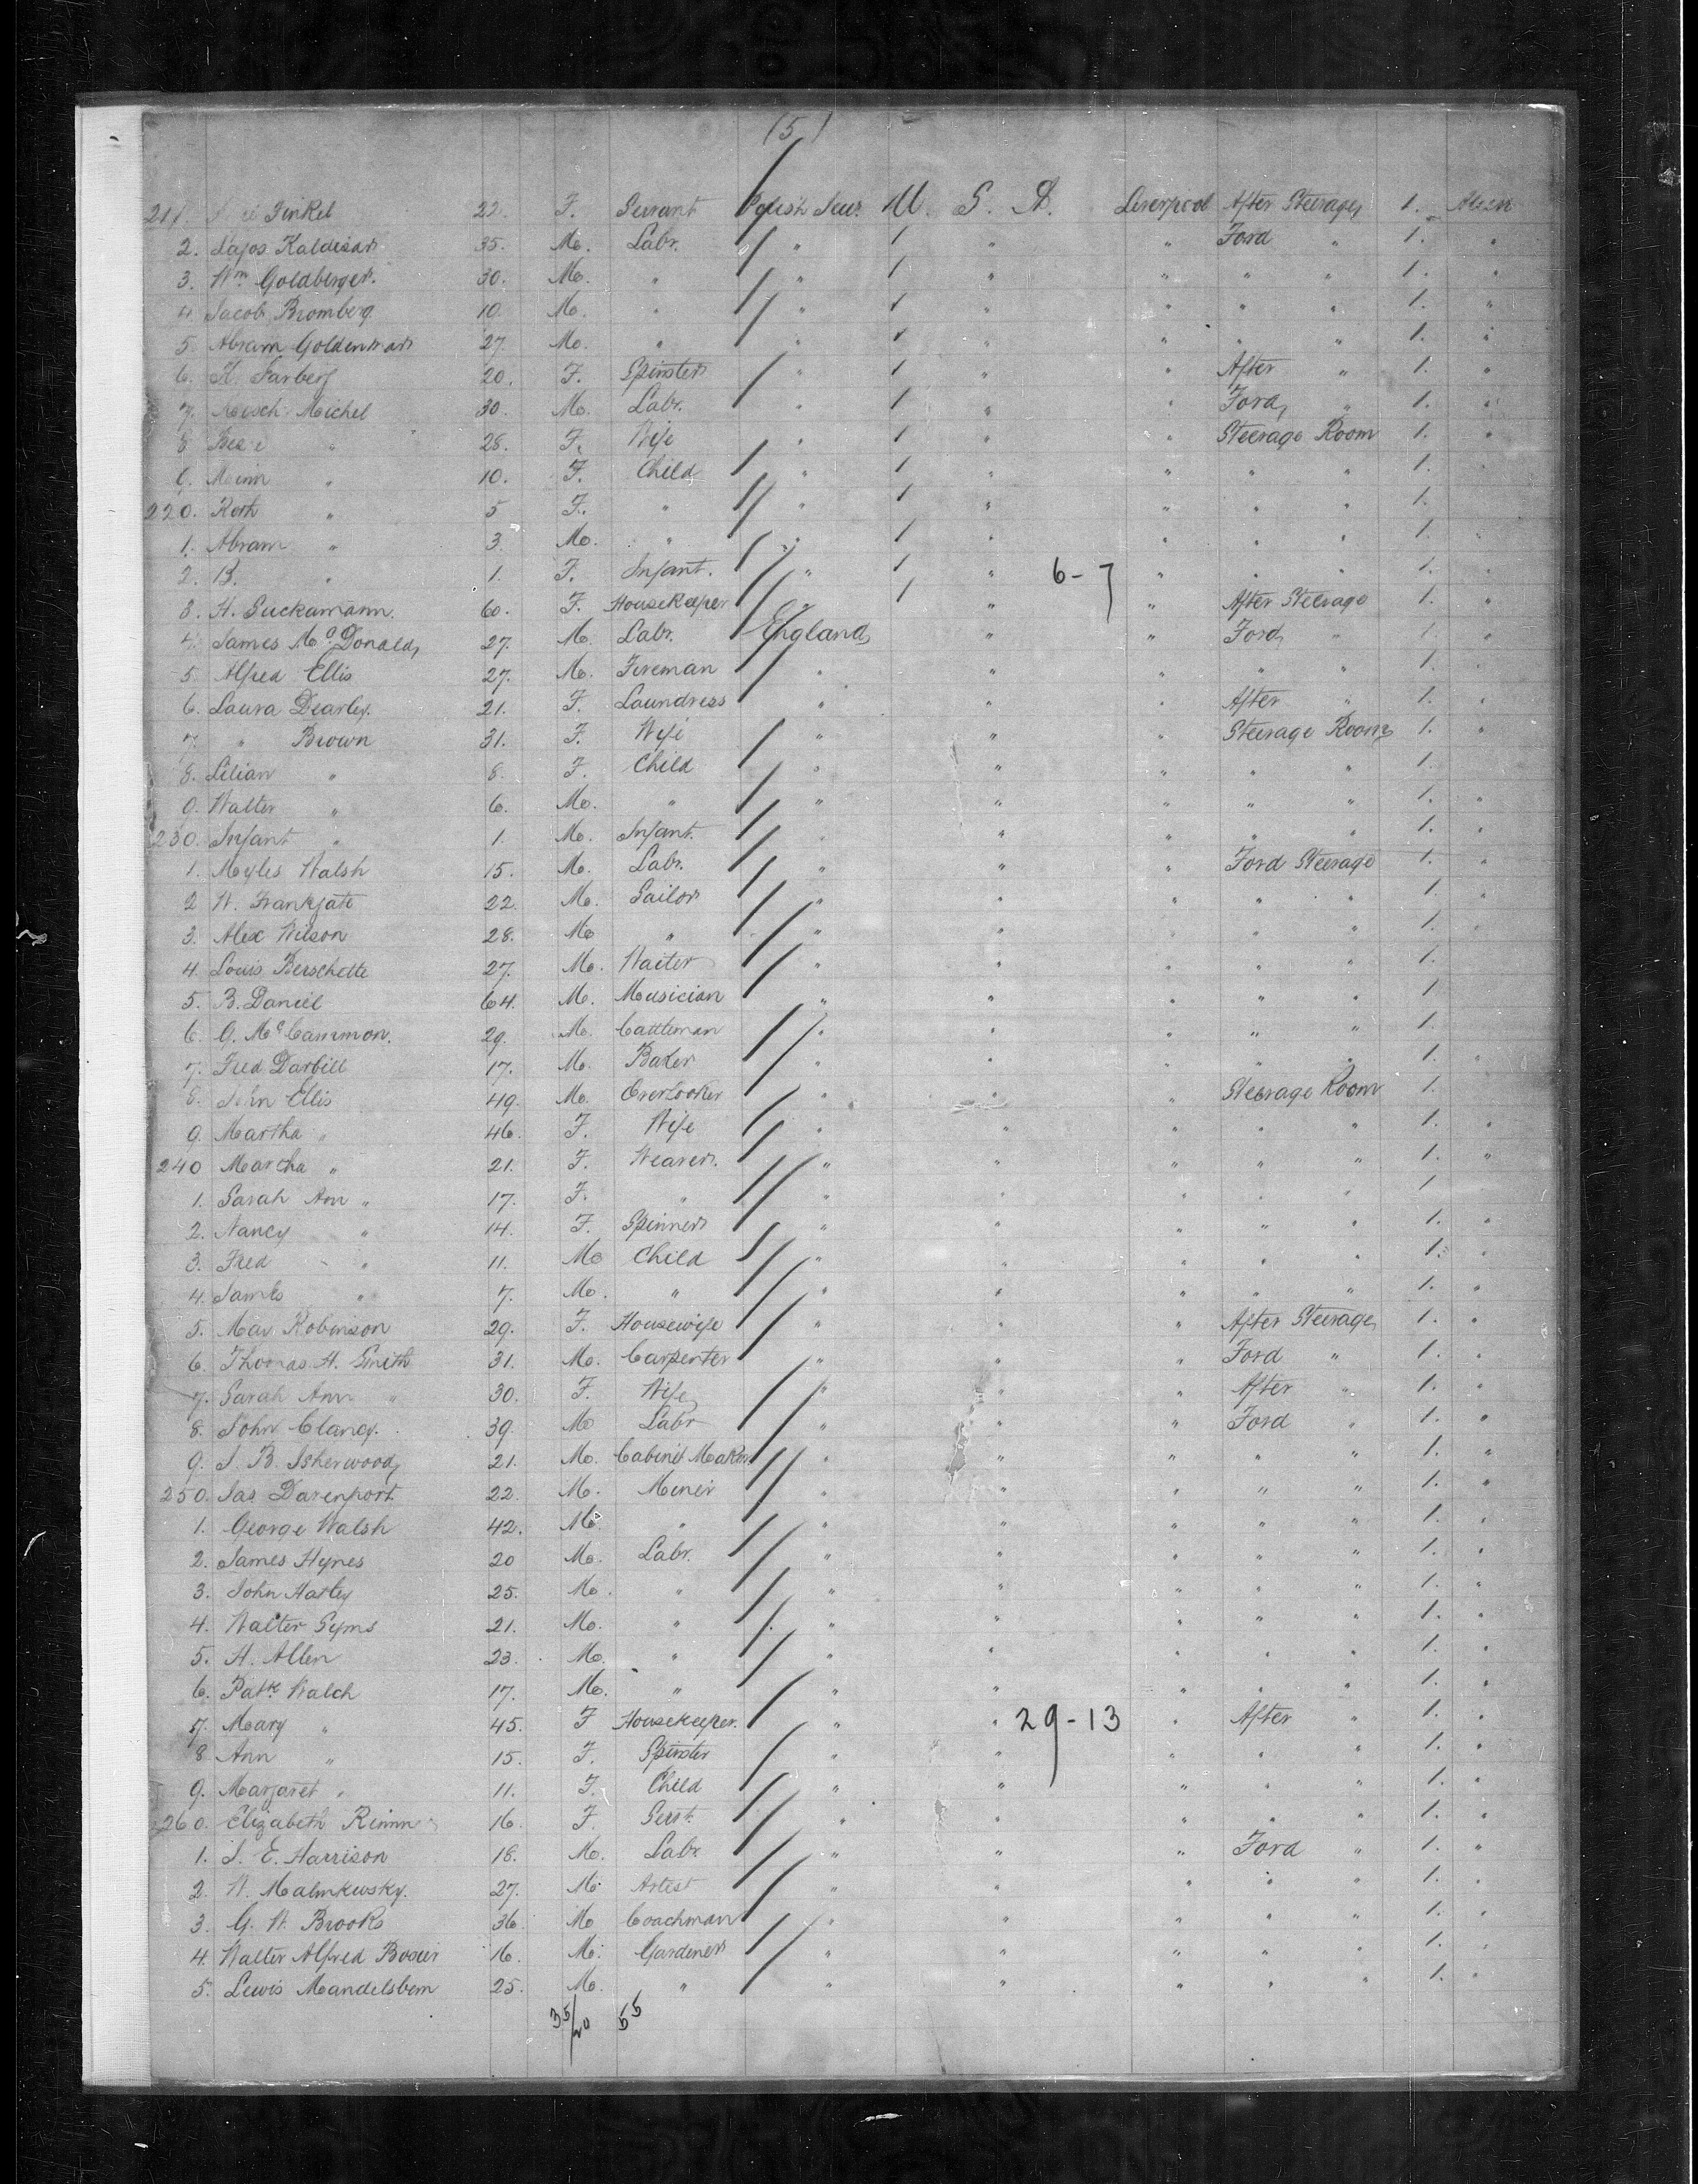 (5)
211. Finkel 22. F. Servant Polish Jew. 1 U. S. A. Liverpool After Steerage 1. Alien
2. Lajos Kaldisar 35. M. Labr. " 1 " " Ford " 1. "
3. Wm Goldberger. 30. M. " " 1 " " " " 1. "
4. Jacob Bromberg 10 M. " " 1 " " " " 1. "
5. Abram Goldenman 27. M. " " 1 " " " " 1. "
6. H. Farberg 20. F. Spinster " 1 " " After " 1. "
7. Michel 30. M. Labr. " 1 " " Ford " 1. "
8 " 28. F. Wife " 1 " " Steerage Room 1. "
9. Minn " 10. F. Child " 1 " " " " 1. "
220. " 5 F. " " 1 " " " " 1.
1. Abram " 3 M. " " 1 " " " " 1. "
2. B. " 1. F. Infant. " 1 " 6-7 " " " 1. "
3. H. Suckamann. 60. F. Housekeeper " 1 " " After Steerage 1. "
4. James McDonald 27. M. Labr. England " " Ford " 1. "
5. Alfred Ellis 27. M. Fireman " " " " " 1. "
6. Laura Dearly. 21. F. Laundress " " " After " 1. "
7. " Brown 31. F. Wife " " " Steerage Room 1. "
8. Lilian " 8. F. Child " " " " " 1.
9. Walter " 6. M. " " " " " " 1. "
230. Infant " 1. M. Infant. " " " " " 1. "
1. Myles Walsh 15. M. Labr. " " " Ford Steerage 1. "
2 W. Frankgate 22. M. Sailor " " " " " 1. "
3. Alex Wilson 28. M " " " " " " 1. "
4. Louis Berschette 27. M. Waiter " " " " " 1.
5. B. Daniel 64. M. Musician " " " " " 1
6. G. McCammon. 29. M. Cattleman " " " " " 1.
7. Fred Darbill 17. M. Baker " " " " " 1. "
8. John Ellis 49. M. Overlooker " " " Steerage Room 1.
9. Martha " 46. F. Wife " " " " " 1. "
240 Martha " 21. F. Weaver. " " " " " 1. "
1. Sarah Ann " 17. F. " " " " " " 1
2. Nancy " 14. F. Spinner " " " " " 1. "
3. Fred " 11. M Child " " " " " 1. "
4. James " 7. M. " " " " " " 1. "
5. May Robinson 29. F. Housewife " " " After Steerage 1. "
6. Thomas H. Smith 31. M. Carpenter " " " Ford " 1. "
7. Sarah Ann " 30. F. Wife " " " After " 1. "
8. John Clancy. 39. M Labr " " " Ford " 1. "
9. J. B. Isherwood 21. M. Cabinet Maker " " " " " 1. "
250. Jas Davenport 22. M. Miner " " " " " 1. "
1. George Walsh 42. M. " " " " " " 1. "
2. James Hynes 20 M. Labr. " " " " " 1. "
3. John Hatley 25. M. " " " " " " 1. "
4. Walter Syms 21. M. " " " " " " 1. "
5. H. Allen 23. M. " " " " " " 1. "
6. Patk Walch 17. M. " " " " " " 1. "
7. Mary " 45. F Housekeeper. " " 29-13 " After " 1. "
8 Ann " 15. F. Spinster " " " " " 1. "
9. Margaret " 11. F. Child " " " " " 1. "
260. Elizabeth 16. F. Servt. " " " " " 1. "
1. J. E. Harrison 18. M. Labr. " " " Ford " 1. "
2. W. Malmkewsky. 27. M. Artist " " " " " 1. "
3. G. W. Brooks 36. M Coachman " " " " " 1. "
4. Walter Alfred 16. M. Gardener " " " " " 1. "
5. Lewis Mandelsbem 25. M. " " " " " " 1. "
35/20 55